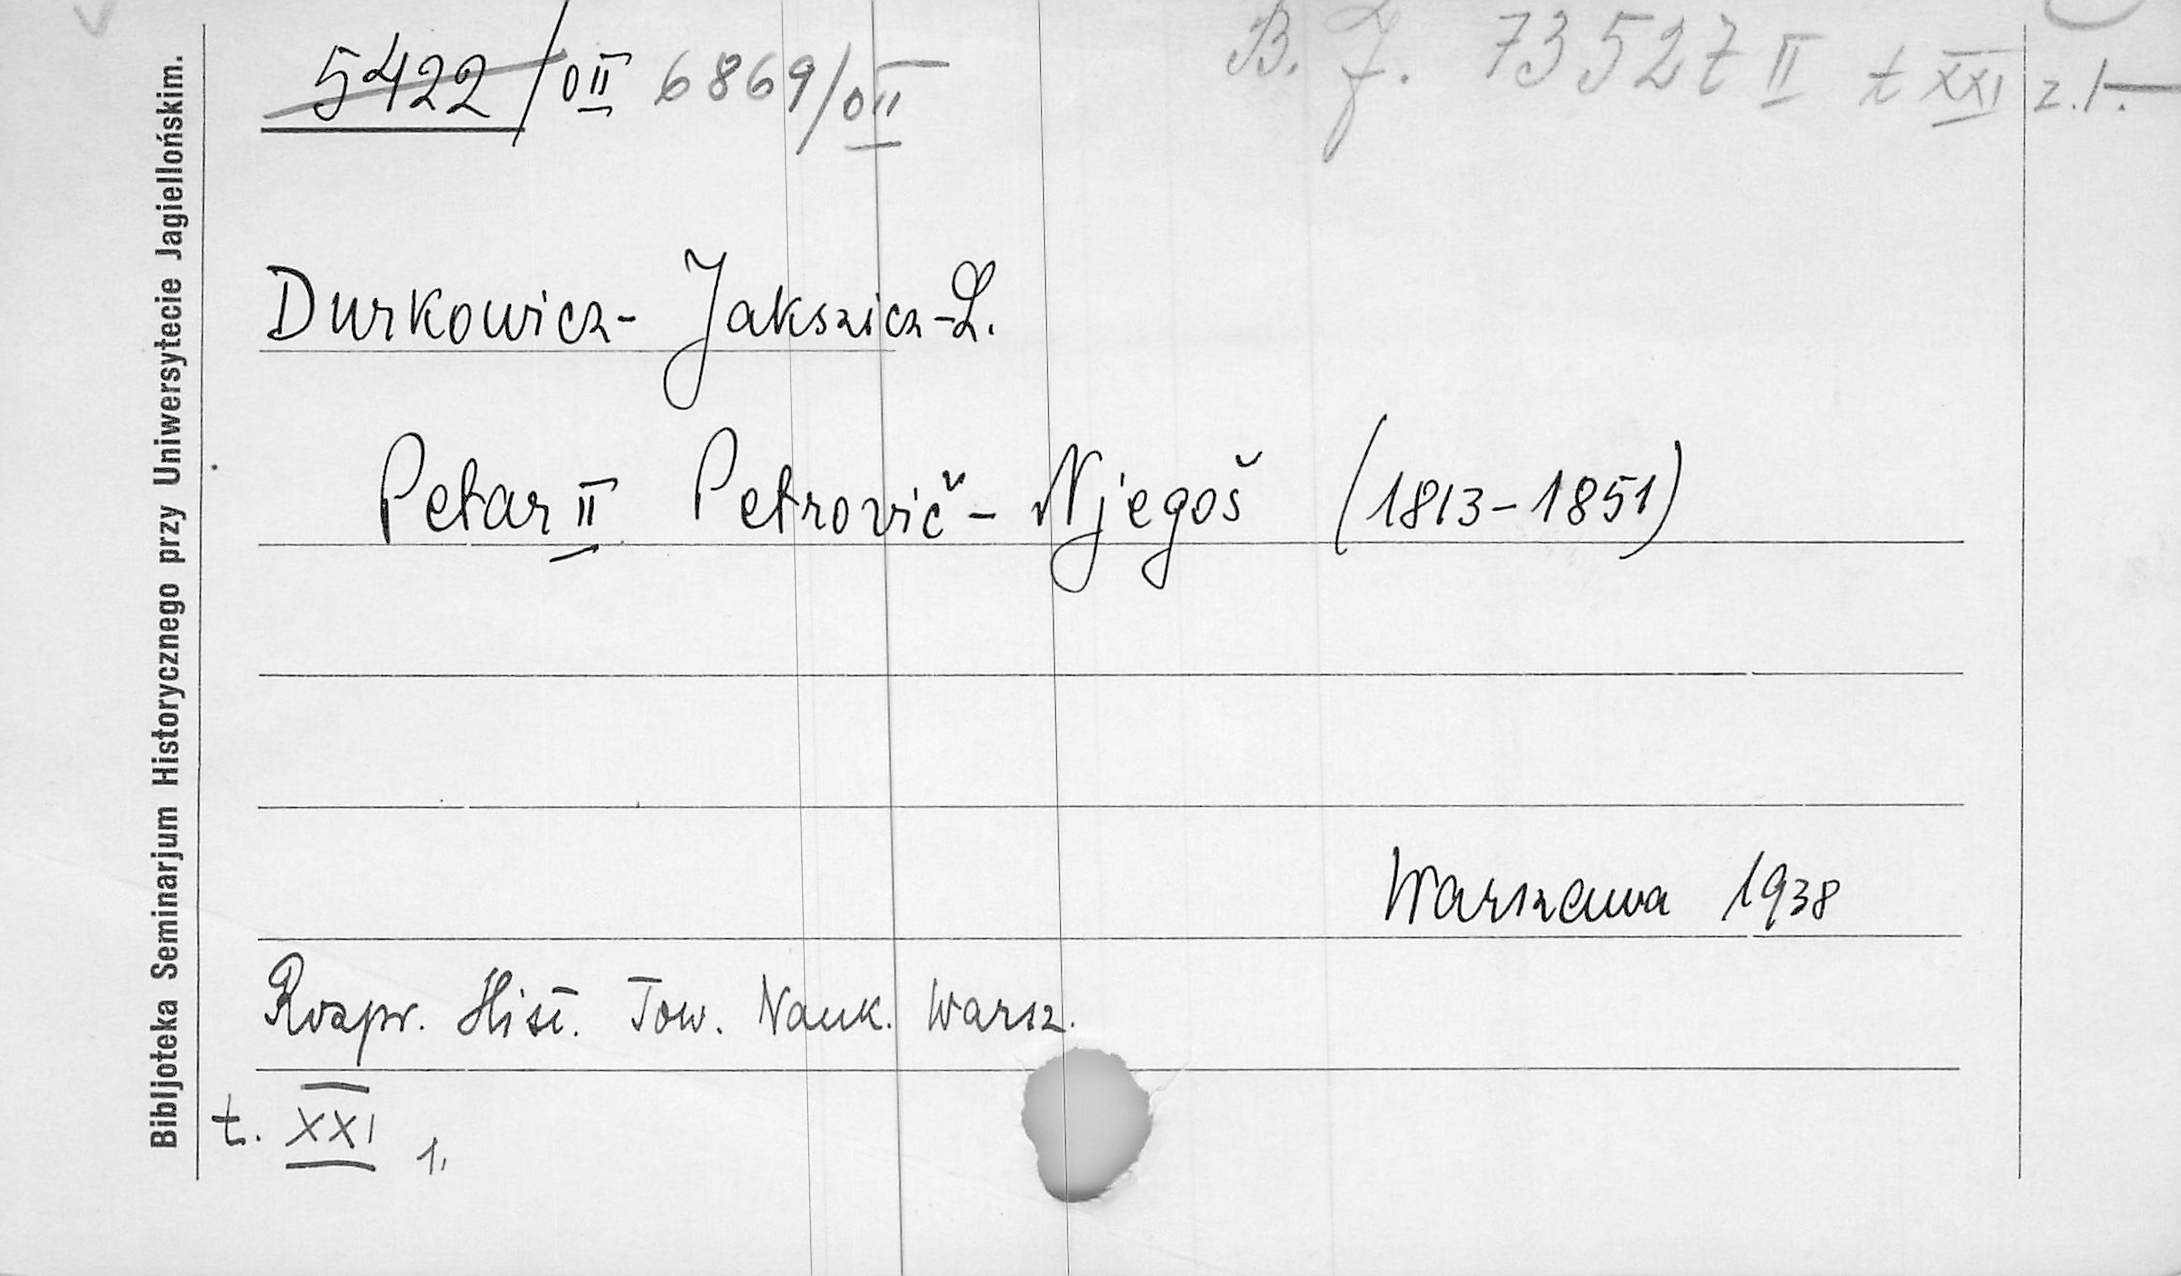 5422/0II 6869/0II B. J. 73527 II t XXI z. 1.
Durkowicz- Jakszicz-L.
Petar II Petrovič- Njegoš (1813-1851)
Warszawa 1938
Rozpr. Hist. Tow. Nauk. Warsz.
t. XXI 1.
Bibljoteka Seminarjum Historycznego przy Uniwersytecie Jagiellońskim.